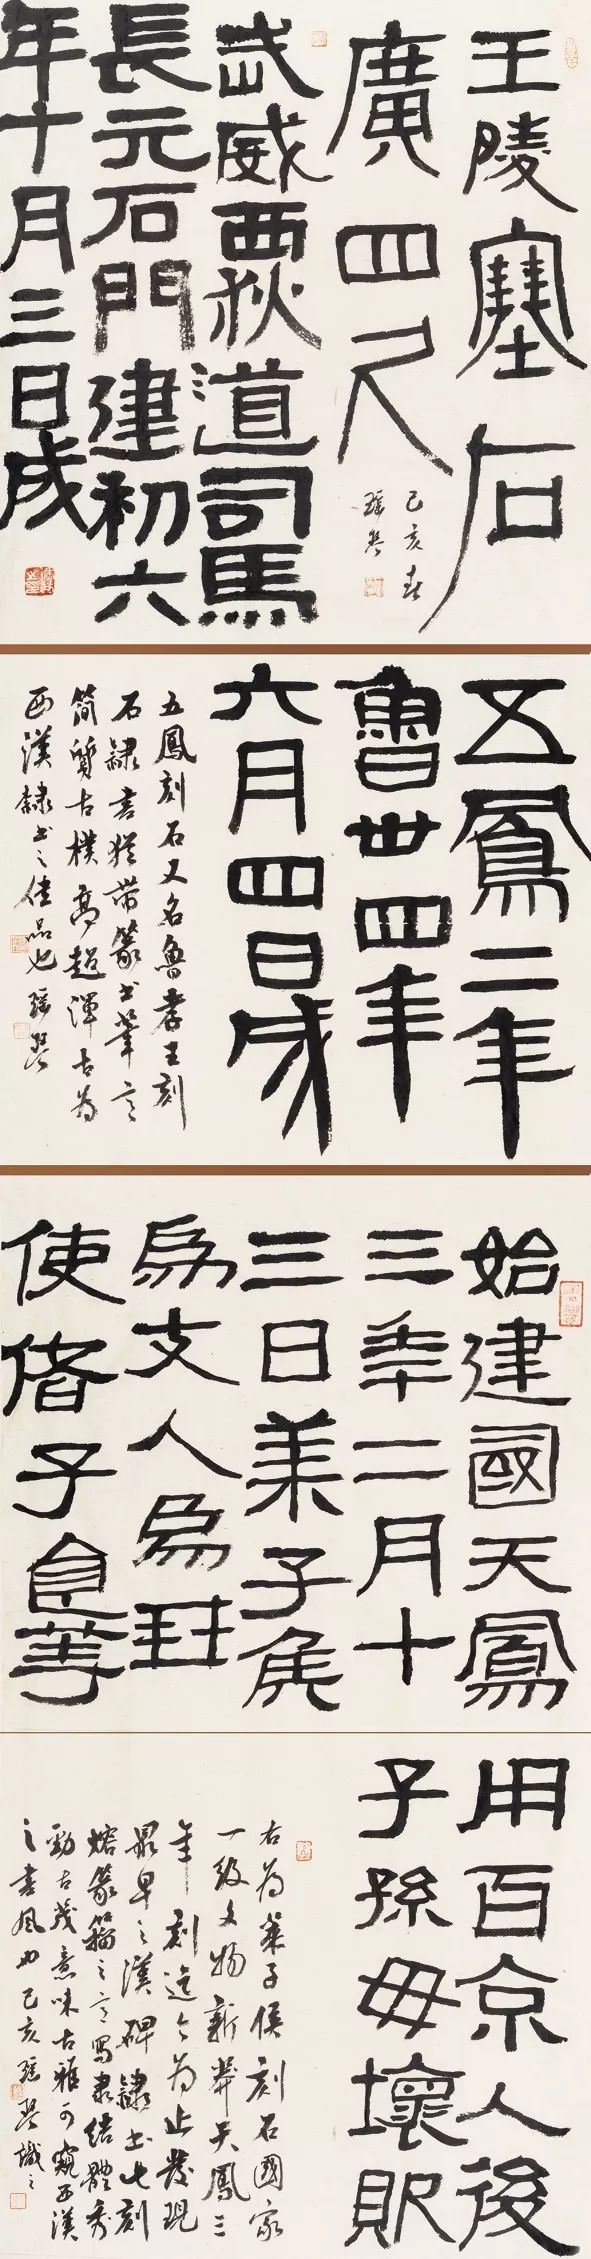 王陵塞石
廣四尺
己亥春
瑶琴
武威西狄道司馬
長元石門建初六
年十月三日成
五鳳二年
魯卅四年
六月四日成
五鳳刻石又名魯孝王刻
石隸書猶帶篆書筆意
簡質古樸高超渾古為
西漢隸書之佳品也瑶琴
始建國天鳳
三年二月十
三日萊子侯
為支人為封
使偖子食等
用百余人後
子孫毋壞敗
右為萊子侯刻石國家
一級文物新莽天鳳三
年刻迄今為止發現
最早之漢碑隸書也刻
熔篆籀之意寫隸結體秀
勁古茂意味古雅可窺西漢
之書風也己亥瑶琴識之